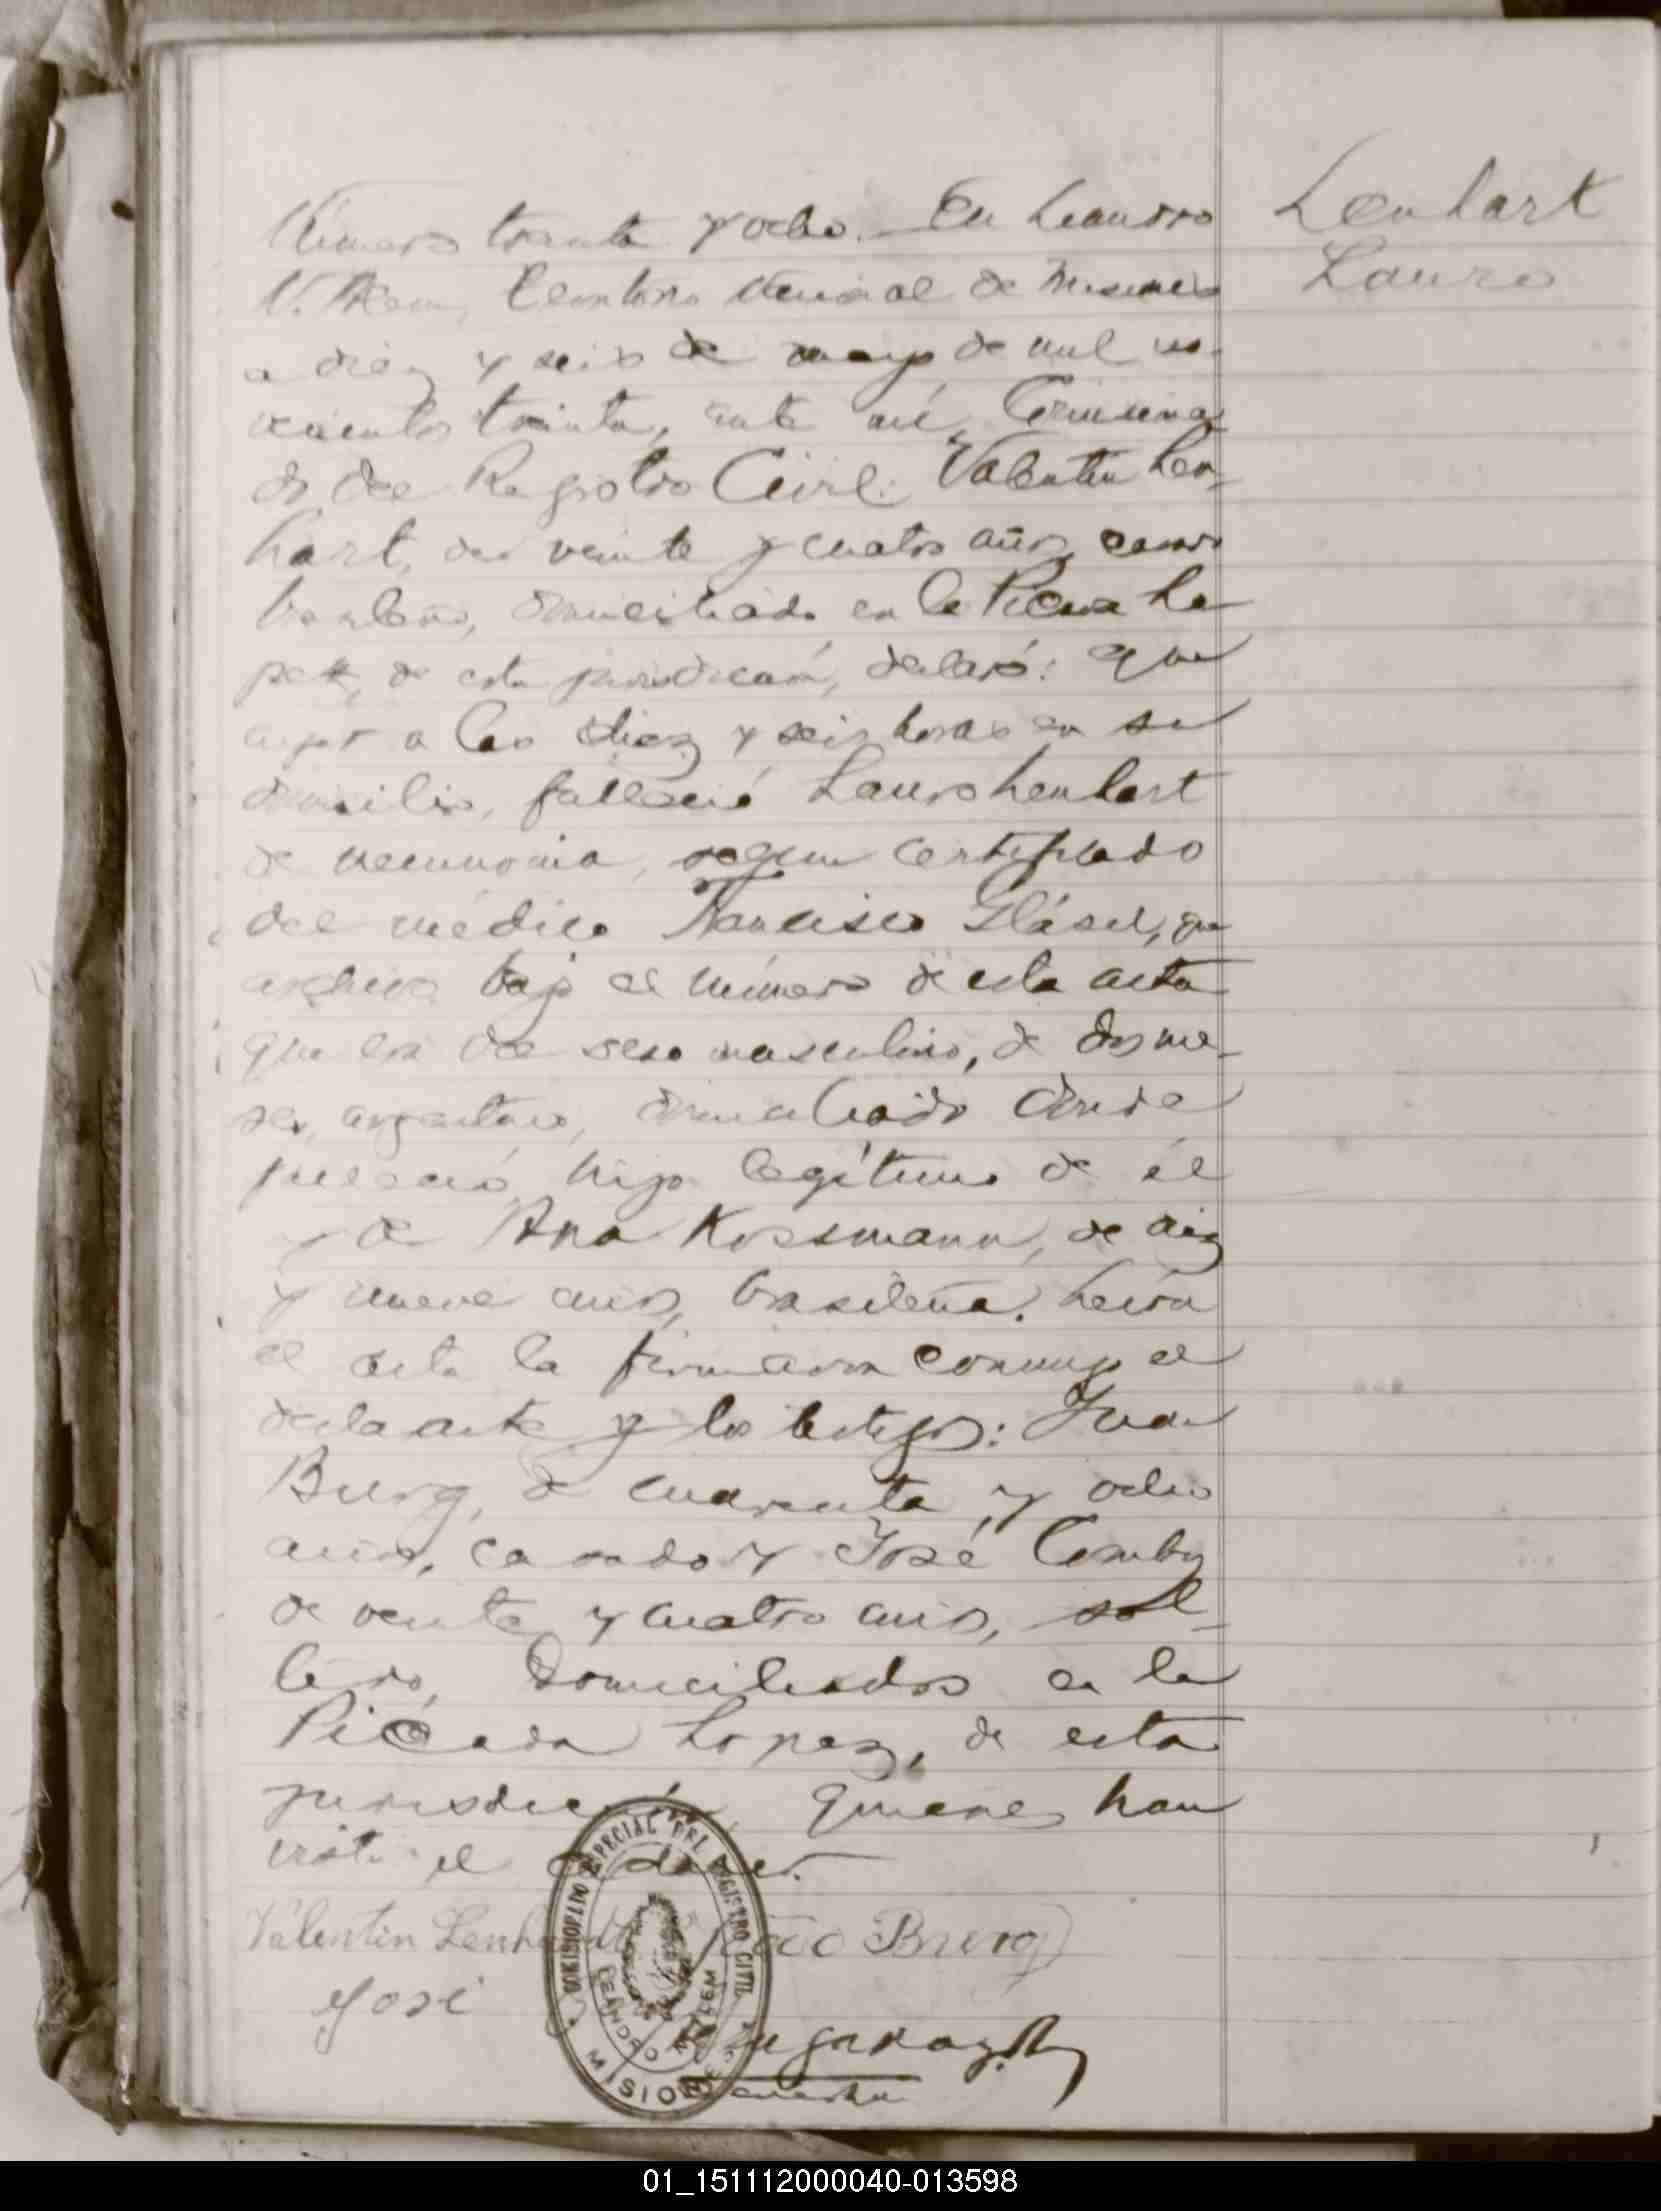 Número treinta y ocho. En Leandro
N. Alem, Territorio Nacional de Misiones
a diez y seis de mayo de mil no-
vecientos treinta, ante mí, Comisiona-
do del Registro Civil: Valentin Len-
hart, de veinte y cuatro años, casado
brasileño, domiciliado en la Picada Lo
pez, de esta jurisdicción, declaró: que
ayer a las diez y seis horas en su
domicilio, falleció Lauro Lenhart
de neumonia, segun certificado
del médico Francisco Gláser, que
archivo bajo el número de esta acta
que era del sexo masculino, de dos me-
ses, argentino, domiciliado donde
falleció, hijo legítimo de él
y de Ana Kossmann, de diez
y nueve años, brasileña. Leída
el acta la firmaron conmigo el
declarante y los testigos: Juan
Burg, de cuarenta y ocho
años, casado y José
de veinte y cuatro años, sol-
tero, domiciliados en la
Picada Lopez, de esta
jurisdicción, quienes han
visto el cadaver.
Valentin Lenhardt João Burg
José
COMISIONADO ESPECIAL DEL REGISTRO CIVIL
LEANDRO N. ALEM
MISIONES
Lenhart
Lauro
01_151112000040-013598